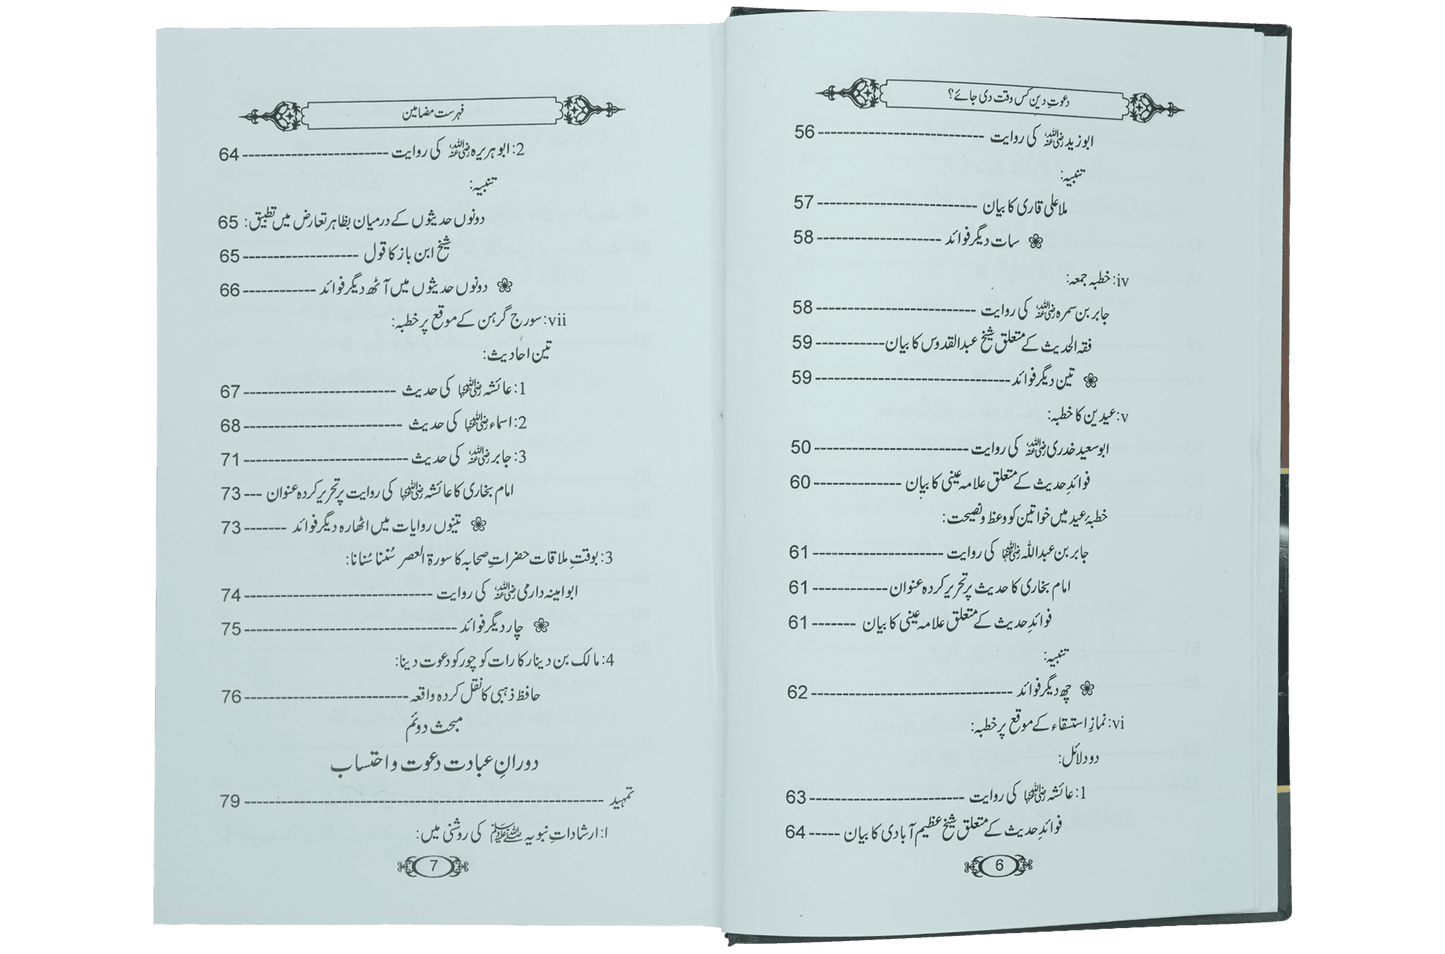 دعوتِ دین کس وقت دی جائے؟
ابوزید رضی اللہ عنہ کی روایت ---------------------- 56
تنبیہ:
ملا علی قاری کا بیان ---------------------- 57
❀ سات دیگر فوائد ---------------------- 58
iv: خطبہ جمعہ:
جابر بن سمرہ رضی اللہ عنہ کی روایت ---------------------- 58
فقہ الحدیث کے متعلق شیخ عبدالقدوس کا بیان ----------- 59
❀ تین دیگر فوائد ---------------------- 59
v: عیدین کا خطبہ:
ابوسعید خدری رضی اللہ عنہ کی روایت ---------------------- 50
فوائدِ حدیث کے متعلق علامہ عینی کا بیان -------------- 60
خطبۂ عید میں خواتین کو وعظ ونصیحت:
جابر بن عبداللہ رضی اللہ عنہما کی روایت ------------------- 61
امام بخاری کا حدیث پر تحریر کردہ عنوان ------------- 61
فوائدِ حدیث کے متعلق علامہ عینی کا بیان ------- 61
تنبیہ:
❀ چھ دیگر فوائد ---------------------- 62
vi: نمازِ استسقاء کے موقع پر خطبہ:
دو دلائل:
1: عائشہ رضی اللہ عنہا کی روایت ---------------------- 63
فوائدِ حدیث کے متعلق شیخ عظیم آبادی کا بیان ----- 64
6
فہرست مضامین
2: ابوہریرہ رضی اللہ عنہ کی روایت ---------------------- 64
تنبیہ:
دونوں حدیثوں کے درمیان بظاہر تعارض میں تطبیق: 65
شیخ ابن باز کا قول ------------------- 65
❀ دونوں حدیثوں میں آٹھ دیگر فوائد ------------ 66
vii: سورج گرہن کے موقع پر خطبہ:
تین احادیث:
1: عائشہ رضی اللہ عنہا کی حدیث ---------------------- 67
2: اسماء رضی اللہ عنہا کی حدیث ---------------------- 68
3: جابر رضی اللہ عنہ کی حدیث ---------------------- 71
امام بخاری کا عائشہ رضی اللہ عنہا کی روایت پر تحریر کردہ عنوان --- 73
❀ تینوں روایات میں اٹھارہ دیگر فوائد ------- 73
3: بوقتِ ملاقات حضراتِ صحابہ کا سورۃ العصر سُننا سُنانا:
ابوامینہ دارمی رضی اللہ عنہ کی روایت ---------------------- 74
❀ چار دیگر فوائد ---------------------- 75
4: مالک بن دینار کا رات کو چور کو دعوت دینا:
حافظ ذہبی کا نقل کردہ واقعہ ---------------------- 76
مبحث دوئم
دورانِ عبادت دعوت و احتساب
تمہید ---------------------- 79
ا: ارشاداتِ نبویہ ﷺ کی روشنی میں:
7